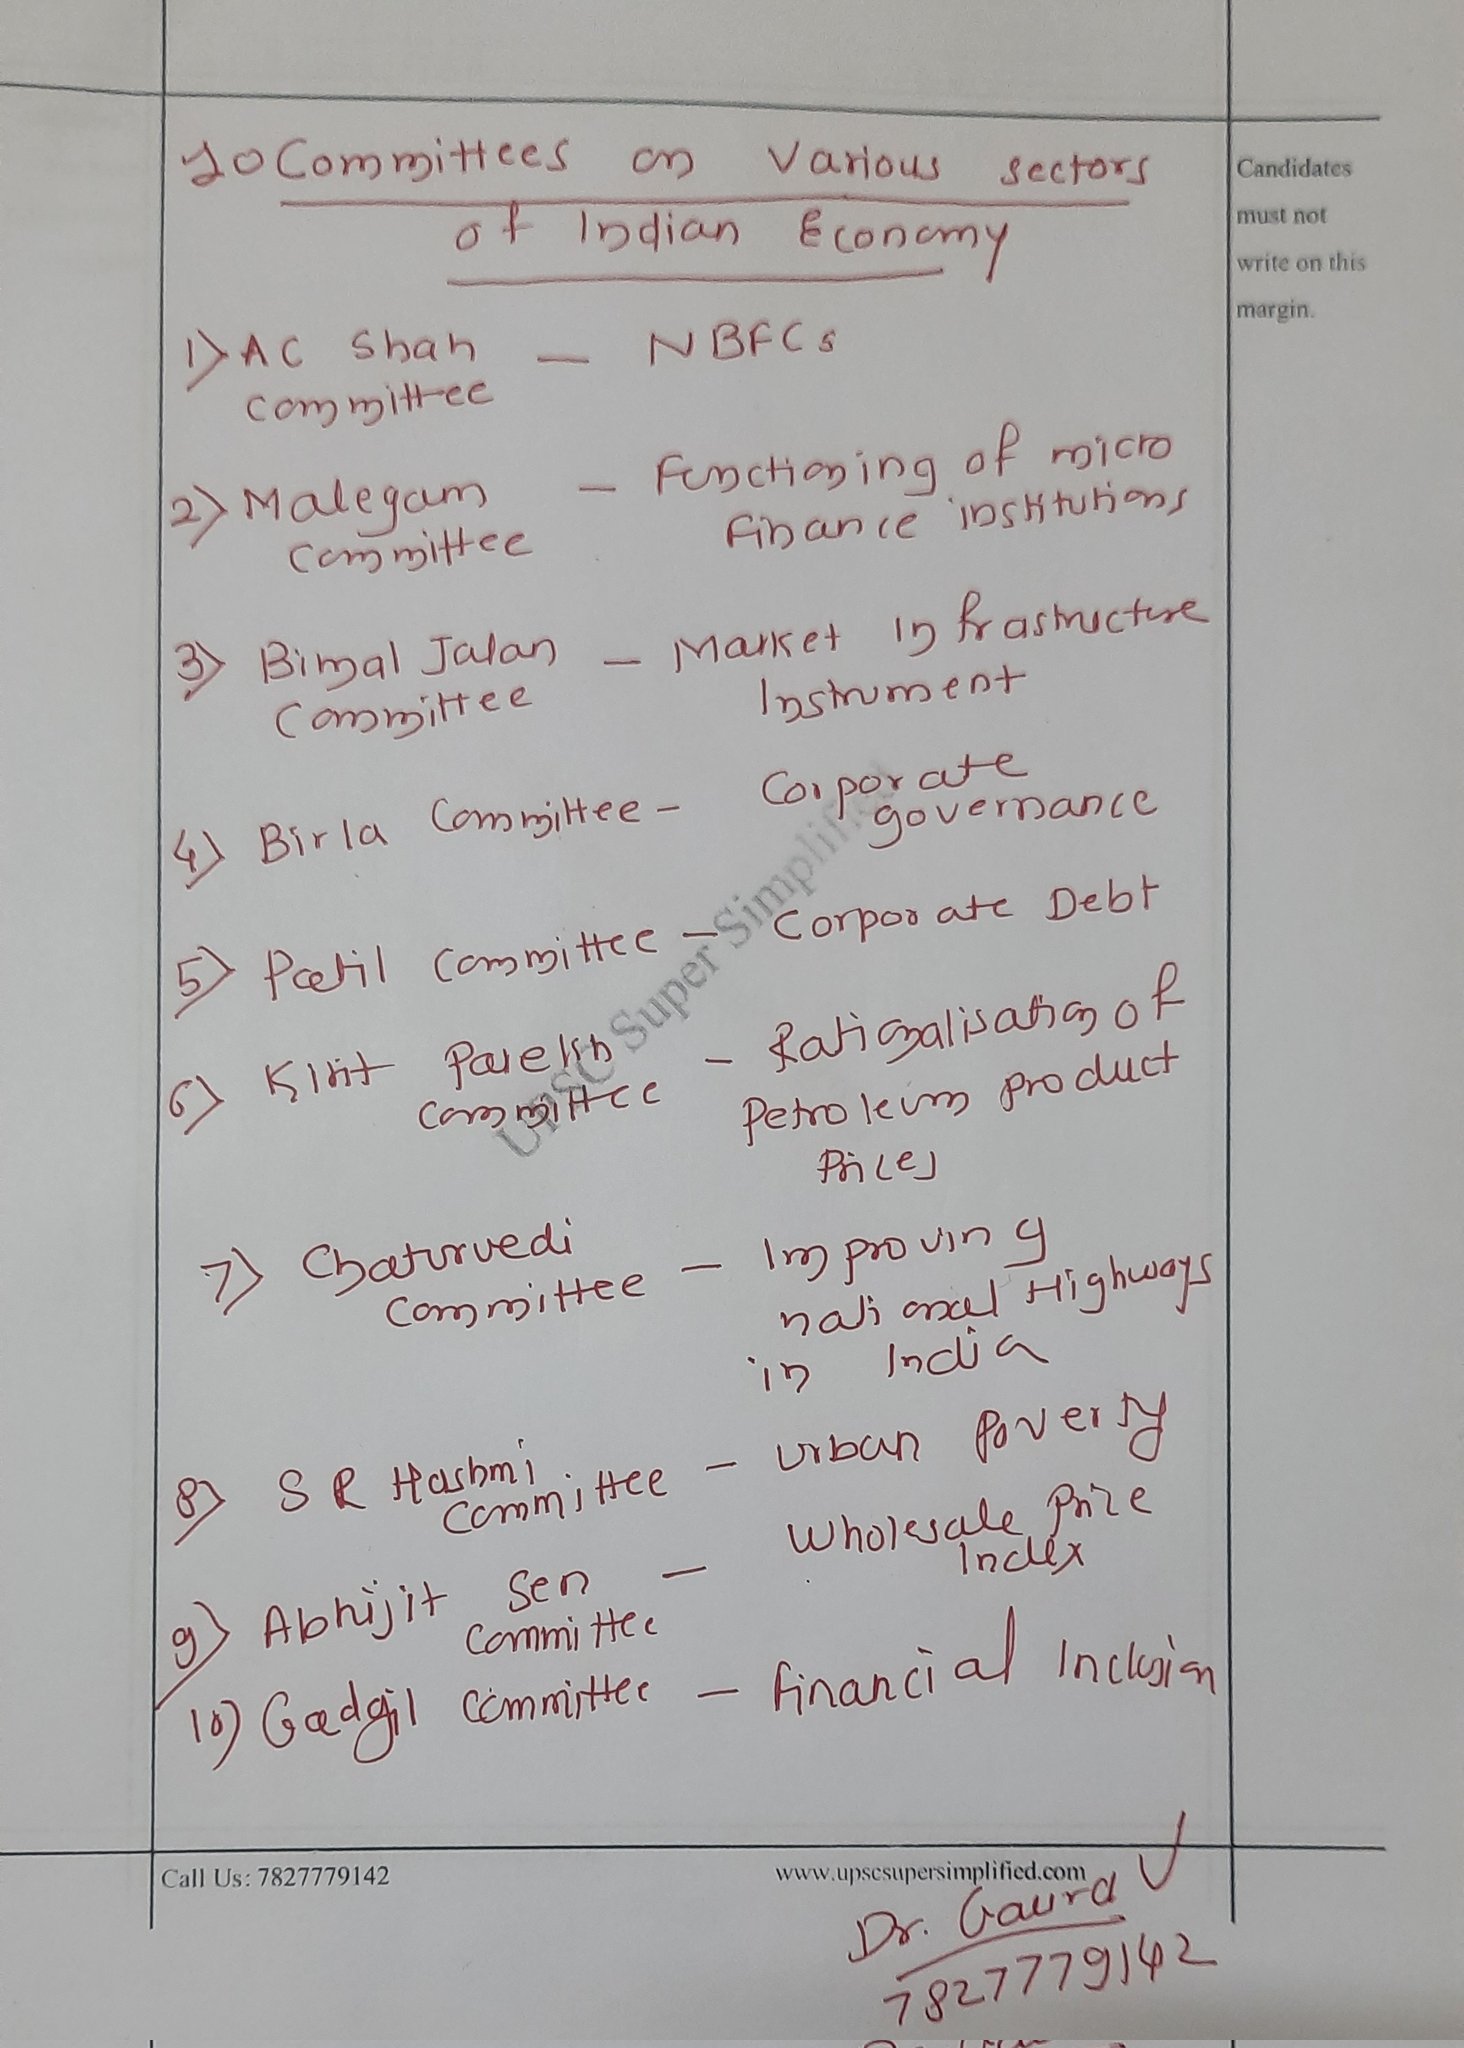 10 Committees on Various sectors
of Indian Economy
Candidates
must not
write on this
margin.
1) AC Shah — NBFCs
committee
2) Malegam — Functioning of micro
committee finance institutions
3) Bimal Jalan — Market Infrastructure
Committee Instrument
4) Birla Committee – Corporate
governance
5) Patil Committee — Corporate Debt
6) Kirit Parekh — Rationalisation of
committee Petroleum product
Prices
7) Chaturvedi — Improving
committee national Highways
in India
8) S R Hashmi — Urban Poverty
committee
9) Abhijit Sen — Wholesale Price
committee Index
10) Gadgil Committee — Financial Inclusion
UPSC Super Simplified
Call Us: 7827779142 www.upscsupersimplified.com
Dr. Gaurav
7827779142